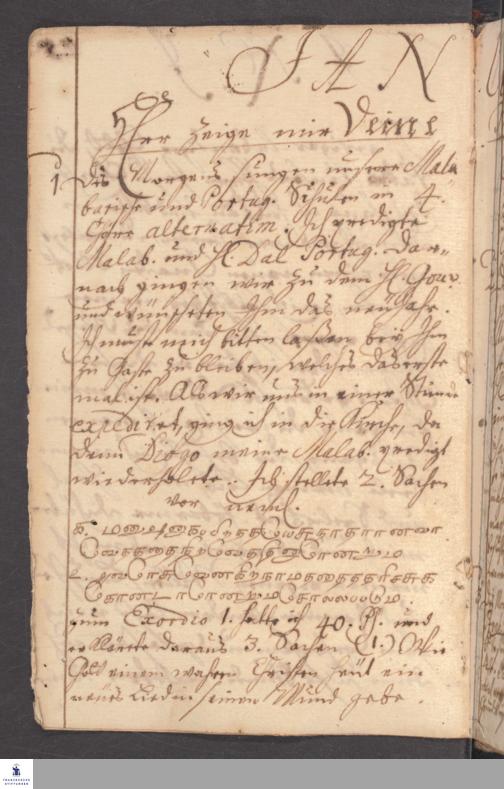 JAN
HErr zeige mir Deine
1 Des Morgens sungen unsere Mala
barische und Portug. Schulen in 4.
Chöre alternatim. Ich predigte
Malab. und H. Dal Portug. Dar-
nach gingen wir zu dem H. Gouv.
und wünscheten Ihm das neü Jahr.
Ich muste mich bitten laßen bey Ihm
zu Gaste zu bleiben, welches das erste
mal ist. Als wir uns in einer Stunde
expediret, ging ich in die Kirche, da
denn Diogo meine Malab. predigt
wiederholete. Ich stellete 2. Sachen
vor neml.
zum Exordio 1. hatte ich 40. Ps. und
erklärete daraus 3. Sachen (1.) Wie
Gott einem wahren Christen heüt ein
neües Lied in seinen Mund gebe.
FRANCKESCHE
STIFTUNGEN